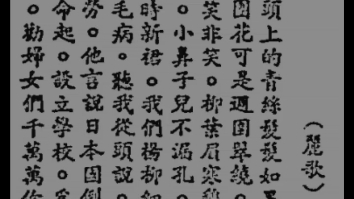 （麗歌）
頭上的青絲髮髮如墨
園花可是週圍翠繞。
笑非笑。柳葉眉寒
。小鼻子兒不漏孔。
時新裙。我們楊柳細
毛病。聽我從頭說。
勞。他言說日本国倒
命起。設立學校。
。勸婦女們千萬萬